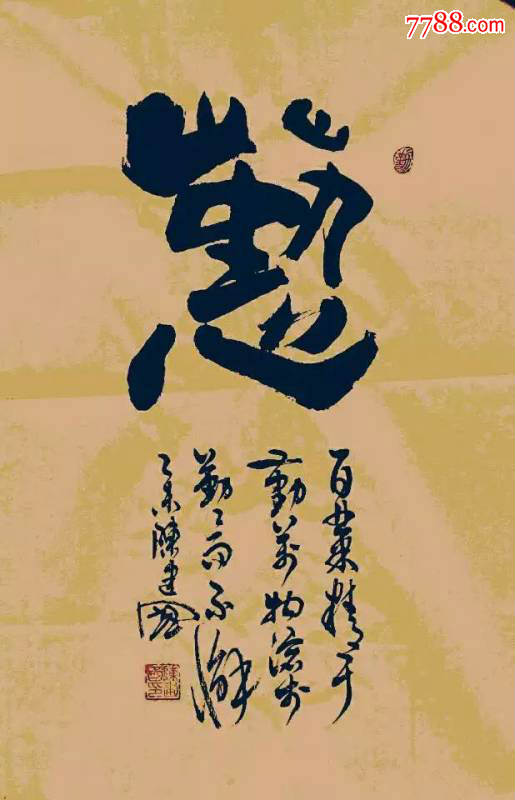 7788.com
懃
百業精于
勤萬物源於
勤〻而不懈
乙未陳建國